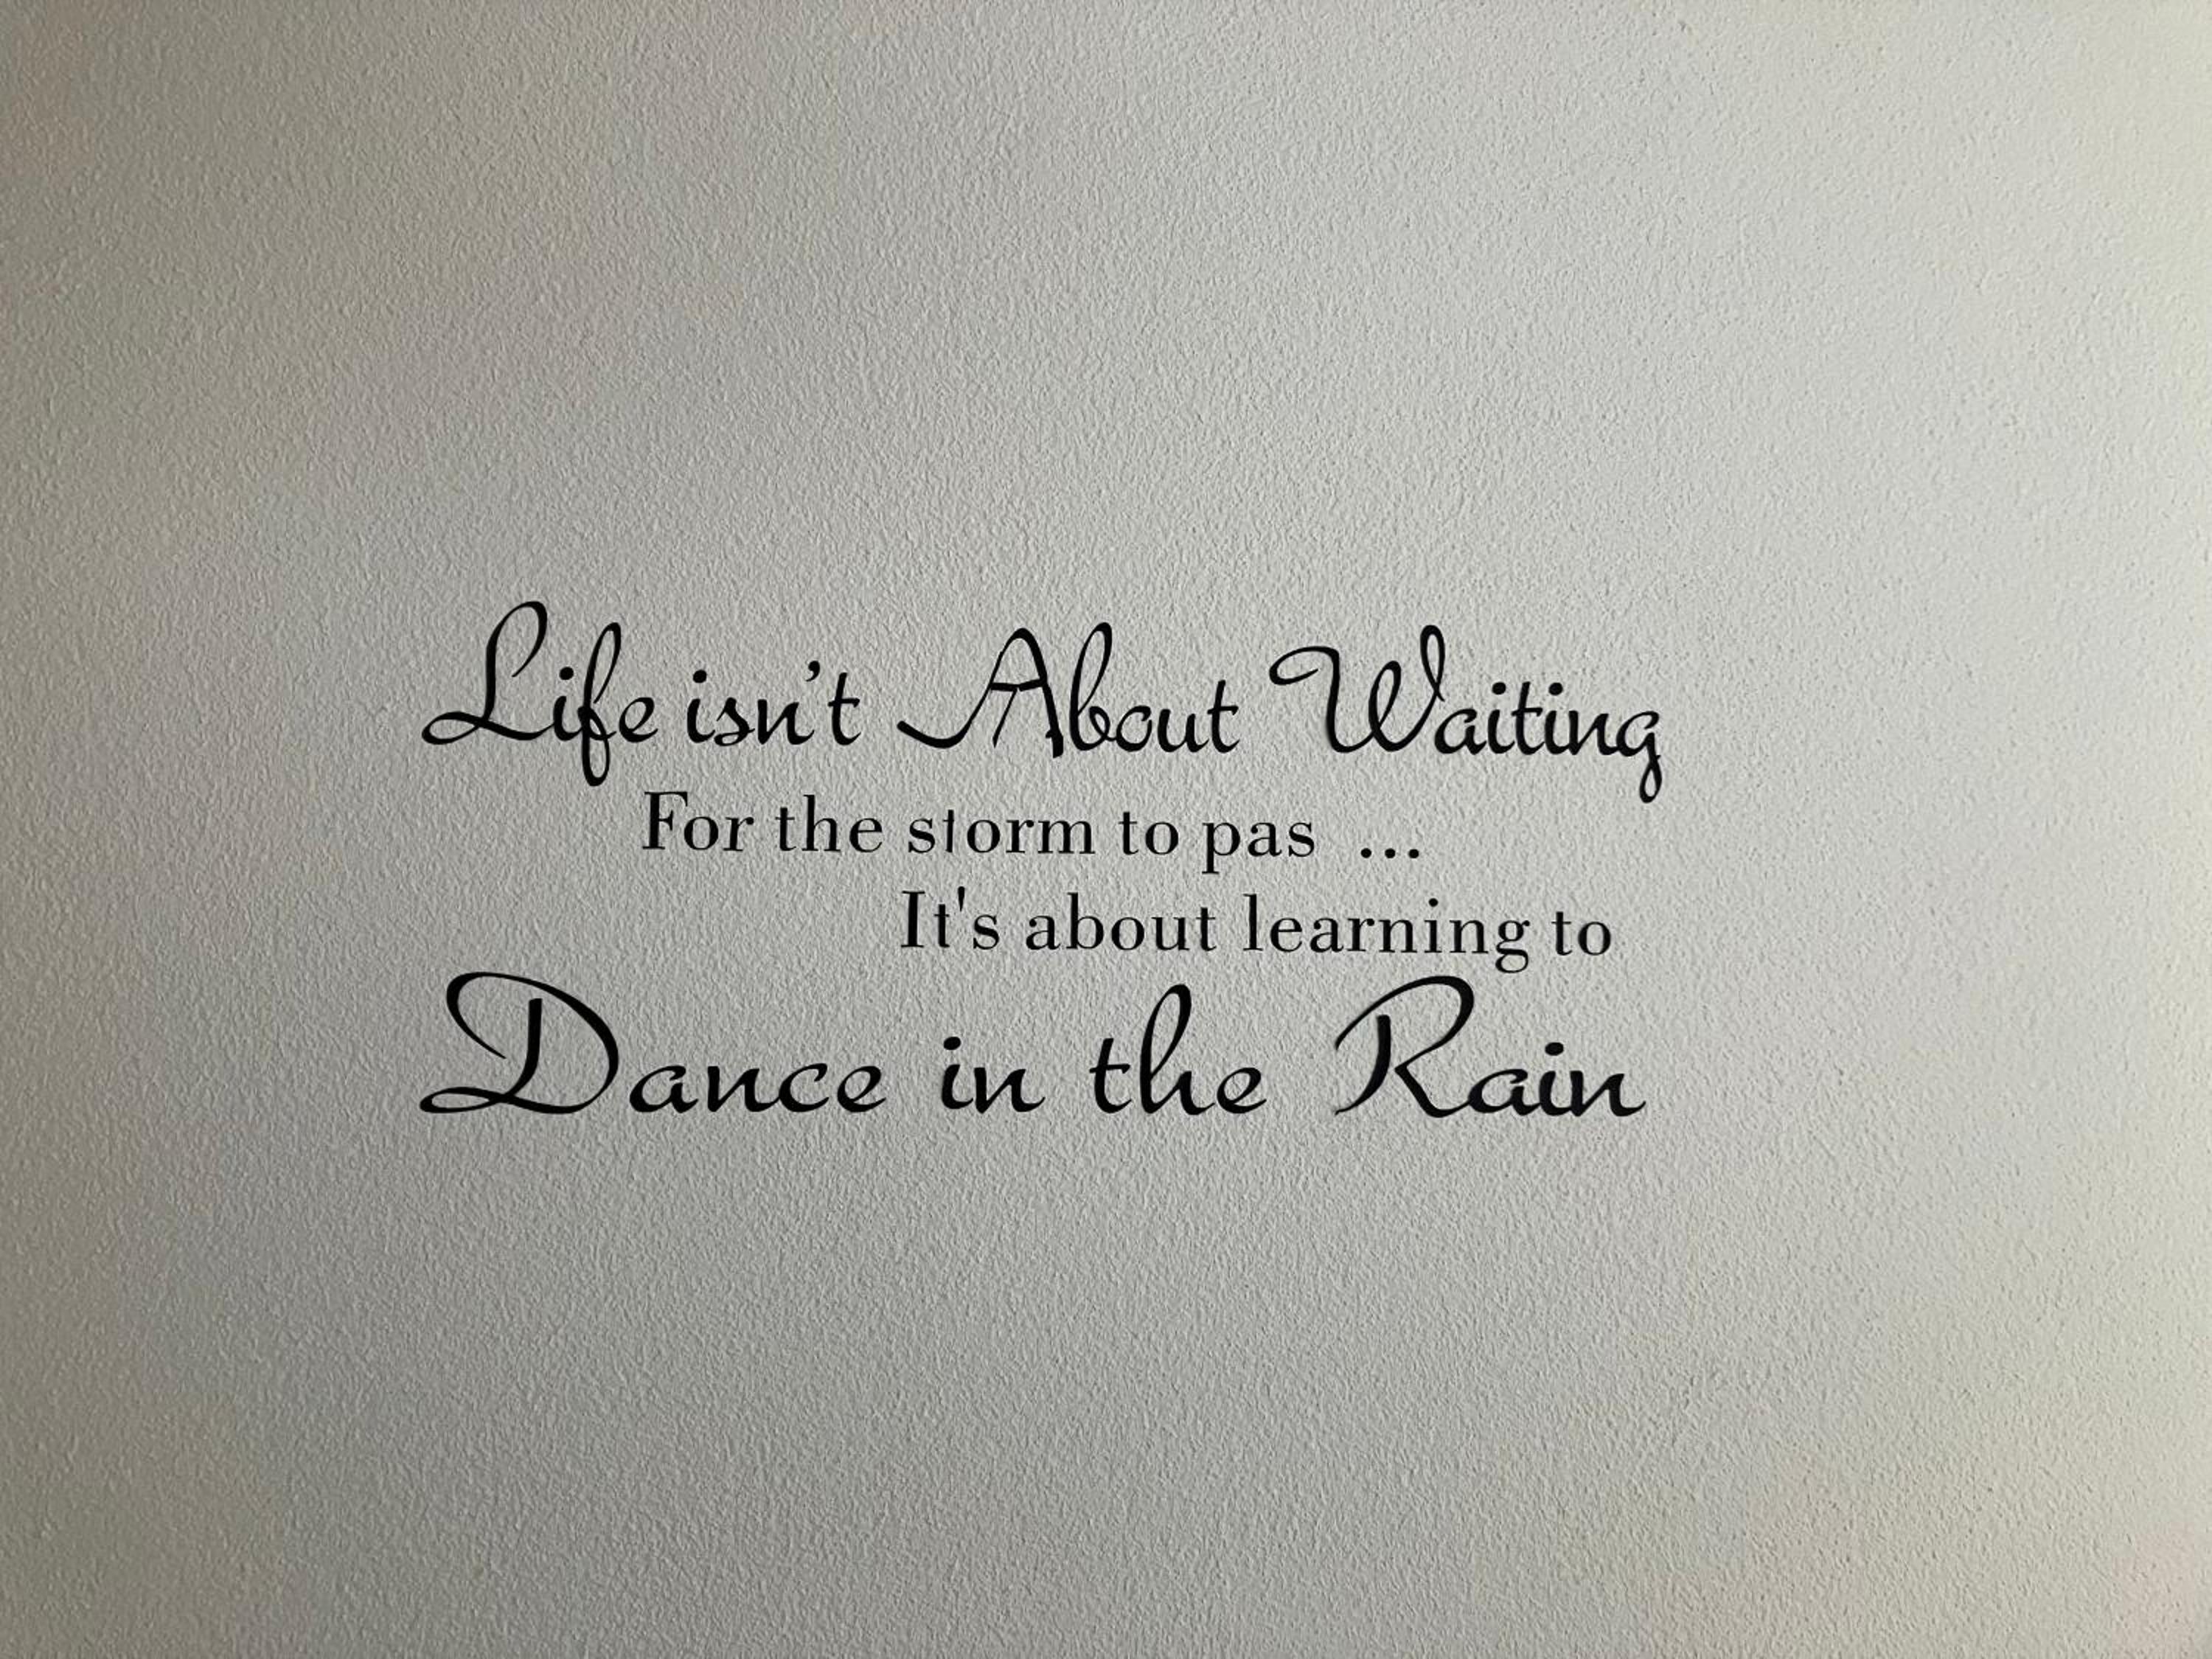 Life isn't About Waiting
For the storm to pas ...
It's about learning to
Dance in the Rain